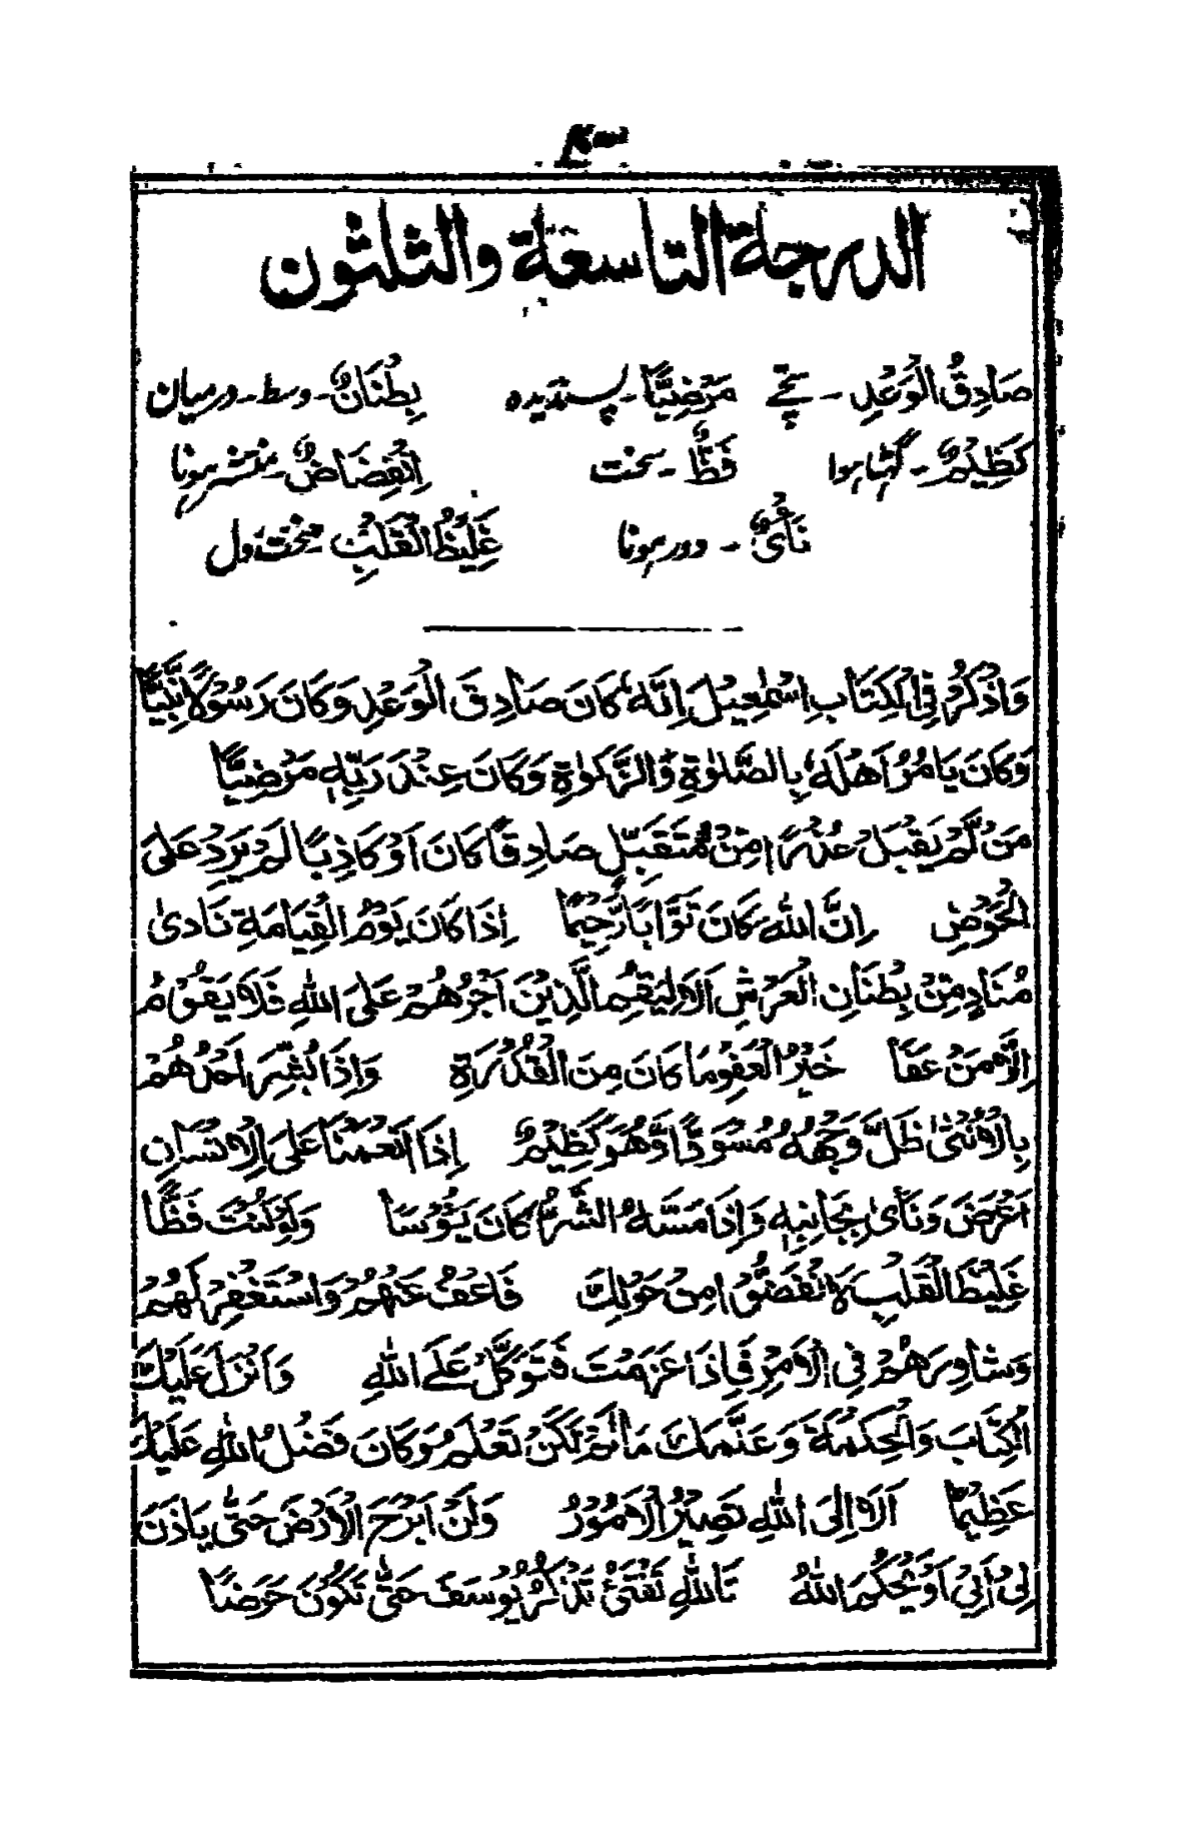 الدرجة التاسعة والثلثون
صَادِقُ الْوَعْدِ - سچے مَرْضِيًّا - پسندیدہ بِطْنَانٌ - وسط - درمیان
كَظِيْمٌ - گھٹا ہوا فَظٌّ - سخت اِنْفِضَاضٌ - منتشر ہونا
نَأْیٌ - دور ہونا غَلِيْظُ الْقَلْبِ - سخت دل
وَاذْكُرْ فِي الْكِتَابِ اِسْمٰعِيْلَ اِنَّهٗ كَانَ صَادِقَ الْوَعْدِ وَكَانَ رَسُوْلًا نَّبِيًّا
وَكَانَ يَامُرُ اَهْلَهٗ بِالصَّلٰوةِ وَالزَّكٰوةِ وَكَانَ عِنْدَ رَبِّهٖ مَرْضِيًّا
مَنْ لَّمْ يَقْبَلْ عُذْرًا مِنْ مُّتَقَبِّلٍ صَادِقًا كَانَ اَوْ كَاذِبًا لَمْ يَرِدْ عَلَى
الْحَوْضِ اِنَّ اللّٰهَ كَانَ تَوَّابًا رَّحِيْمًا اِذَا كَانَ يَوْمُ الْقِيَامَةِ نَادىٰ
مُنَادٍ مِنْ بِطْنَانِ الْعَرْشِ اَلَا لِيَقُمِ الَّذِيْنَ اَجْرُهُمْ عَلَى اللّٰهِ فَلَا يَقُوْمُ
اِلَّا مَنْ عَفَا خَيْرُ الْعَفْوِ مَا كَانَ مِنَ الْقُدْرَةِ وَاِذَا بُشِّرَ اَحَدُهُمْ
بِالْاُنْثىٰ ظَلَّ وَجْهُهٗ مُسْوَدًّا وَّهُوَ كَظِيْمٌ اِذَا اَنْعَمْنَا عَلَى الْاِنْسَانِ
اَعْرَضَ وَنَأىٰ بِجَانِبِهٖ وَاِذَا مَسَّهُ الشَّرُّ كَانَ يَؤُسًا وَلَوْ كُنْتَ فَظًّا
غَلِيْظَ الْقَلْبِ لَانْفَضُّوْا مِنْ حَوْلِكَ فَاعْفُ عَنْهُمْ وَاسْتَغْفِرْ لَهُمْ
وَشَاوِرْهُمْ فِي الْاَمْرِ فَاِذَا عَزَمْتَ فَتَوَكَّلْ عَلَى اللّٰهِ وَاَنْزَلَ عَلَيْكَ
الْكِتَابَ وَالْحِكْمَةَ وَعَلَّمَكَ مَا لَمْ تَكُنْ تَعْلَمُ وَكَانَ فَضْلُ اللّٰهِ عَلَيْكَ
عَظِيْمًا اَلَا اِلَى اللّٰهِ تَصِيْرُ الْاُمُوْرُ وَلَنْ اَبْرَحَ الْاَرْضَ حَتّٰى يَاذَنَ
لِيْ اَبِيْ اَوْ يَحْكُمَ اللّٰهُ تَاللّٰهِ تَفْتَئُ تَذْكُرُ يُوْسُفَ حَتّٰى تَكُوْنَ حَرَضًا